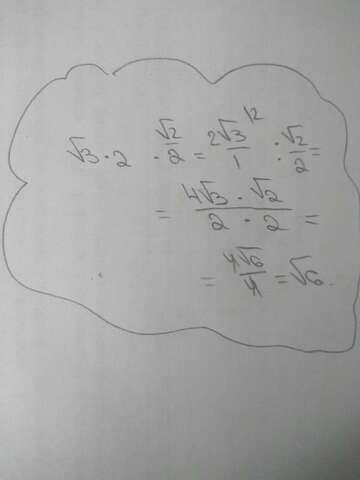 √3 · 2 · √2/2 = 2√3/1 |2 · √2/2 =
= 4√3 · √2 / 2 · 2 =
= 4√6/4 = √6.